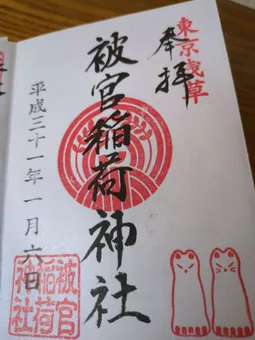 東京浅草
奉拝
被官稲荷神社
平成三十一年一月六日
被官
稲荷
神社